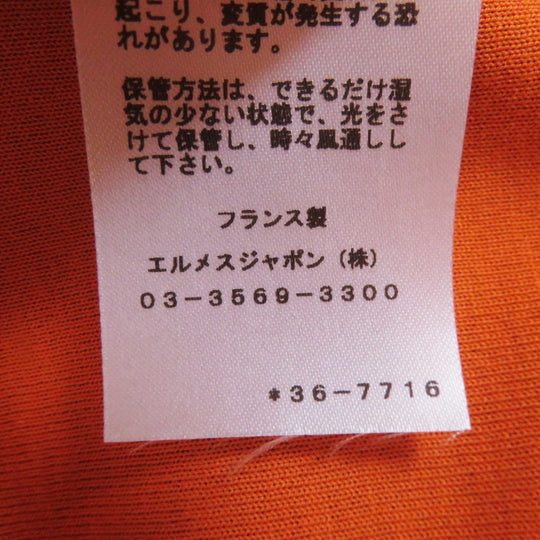 起こり、変質が発生する恐
れがあります。
保管方法は、できるだけ湿
気の少ない状態で、光をさ
けて保管し、時々風通しし
て下さい。
フランス製
エルメスジャポン（株）
03-3569-3300
*36-7716